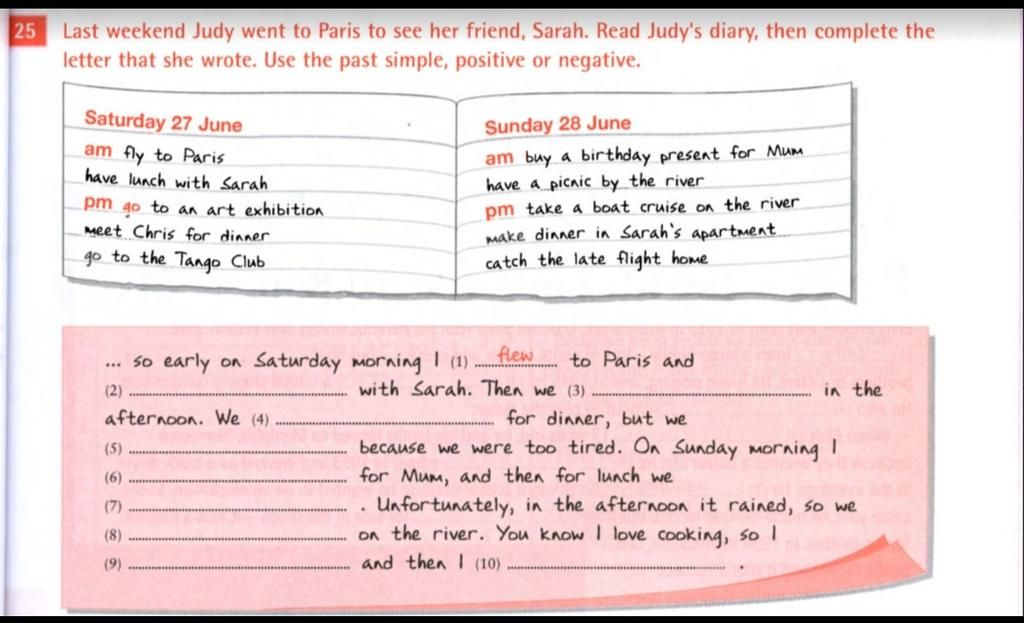 25 Last weekend Judy went to Paris to see her friend, Sarah. Read Judy's diary, then complete the
letter that she wrote. Use the past simple, positive or negative.
Saturday 27 June
am fly to Paris
have lunch with Sarah
pm go to an art exhibition
meet Chris for dinner
go to the Tango Club
Sunday 28 June
am buy a birthday present for Mum
have a picnic by the river
pm take a boat cruise on the river
make dinner in Sarah's apartment
catch the late flight home
... so early on Saturday morning I (1) ....flew.... to Paris and
(2) ........................ with Sarah. Then we (3) ........................ in the
afternoon. We (4) ........................ for dinner, but we
(5) ........................ because we were too tired. On Sunday morning I
(6) ........................ for Mum, and then for lunch we
(7) ........................ . Unfortunately, in the afternoon it rained, so we
(8) ........................ on the river. You know I love cooking, so I
(9) ........................ and then I (10) ........................ .